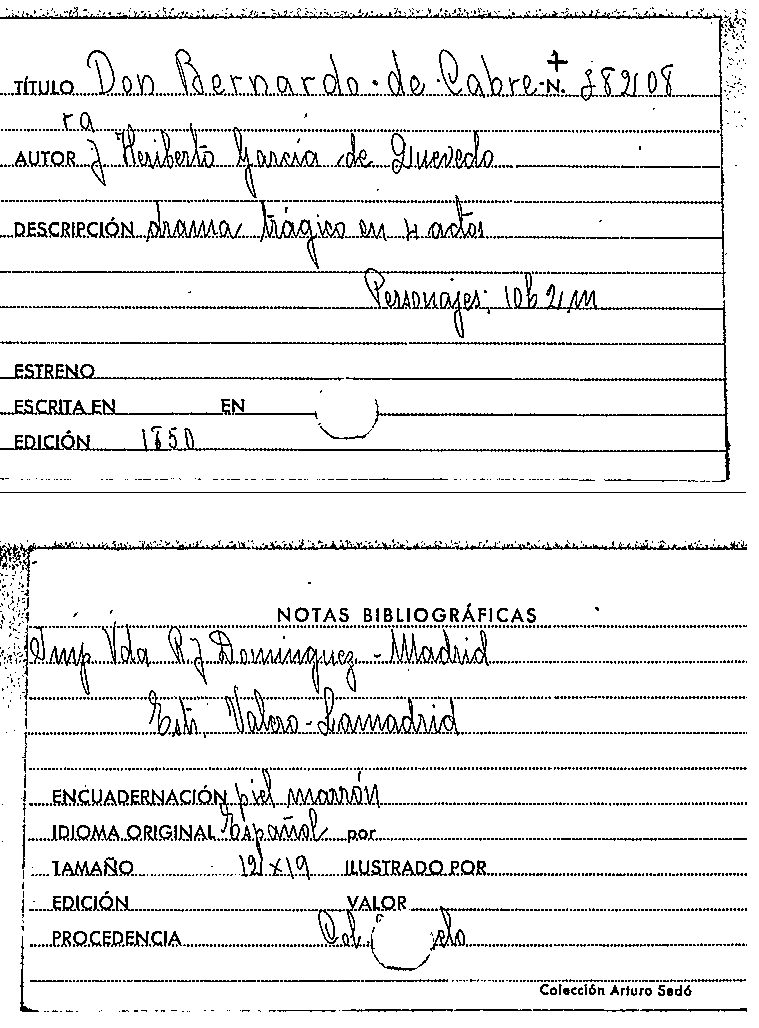 TÍTULO Don Bernardo de Cabre N. 
ra
AUTOR J Heriberto García de Quevedo
DESCRIPCIÓN drama trágico en 4 actos
Personajes; 10h 2m
ESTRENO
ESCRITA EN EN
EDICIÓN 1850
NOTAS BIBLIOGRÁFICAS
Imp Vda R J Dominguez - Madrid
Estr. Valero-Lamadrid
ENCUADERNACIÓN piel marrón
IDIOMA ORIGINAL Español por
TAMAÑO 12x19 ILUSTRADO POR
EDICIÓN VALOR
PROCEDENCIA
Colección Arturo Sedó